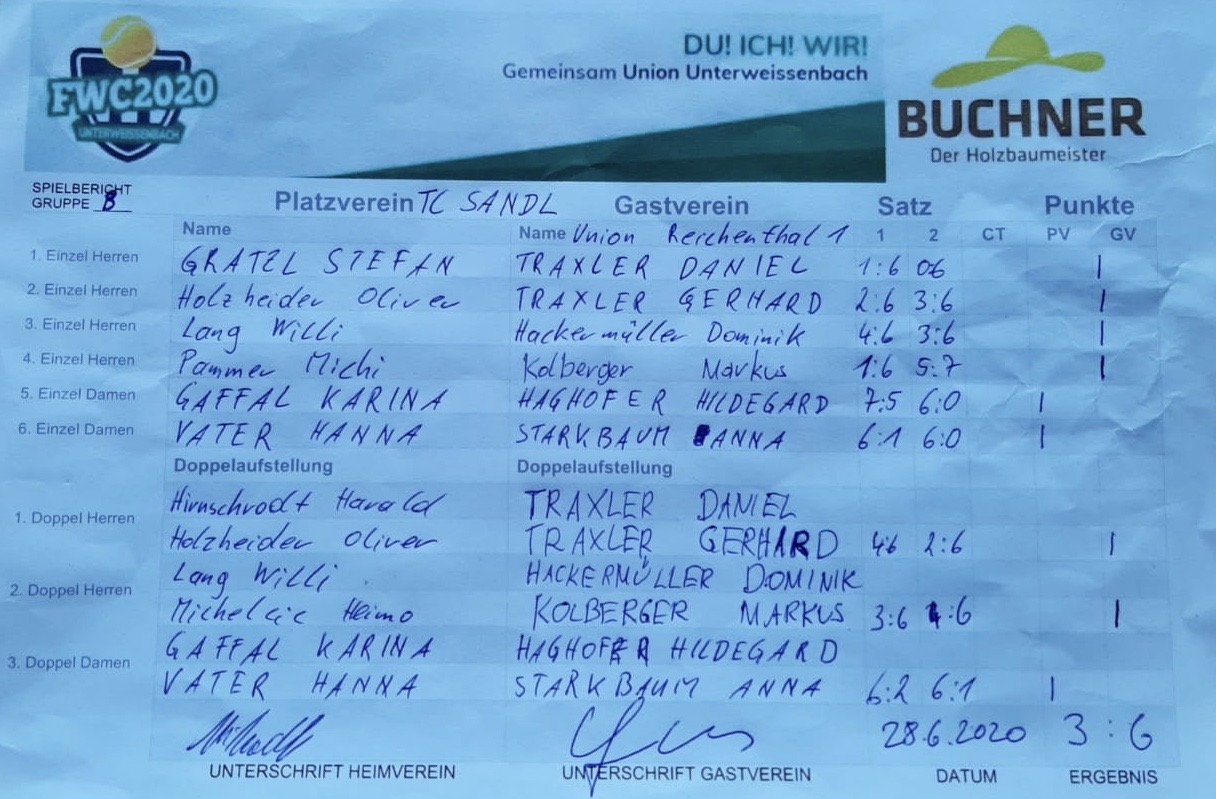 DU! ICH! WIR!
FWC2020
UNTERWEISSENBACH
Gemeinsam Union Unterweissenbach
BUCHNER
Der Holzbaumeister
SPIELBERICHT
GRUPPE B
Platzverein TC SANDL Gastverein Satz Punkte
Name Name Union Reichenthal 1 1 2 CT PV GV
1. Einzel Herren GRATZL STEFAN TRAXLER DANIEL 1:6 06 |
2. Einzel Herren Holzheider Oliver TRAXLER GERHARD 2:6 3:6 |
3. Einzel Herren Lang Willi Hackermüller Dominik 4:6 3:6 |
4. Einzel Herren Pammer Michi Kolberger Markus 1:6 5:7 |
5. Einzel Damen GAFFAL KARINA HAGHOFER HILDEGARD 7:5 6:0 |
6. Einzel Damen VATER HANNA STARKBAUM ANNA 6:1 6:0 |
Doppelaufstellung Doppelaufstellung
Hirnschrodt Harald TRAXLER DANIEL
1. Doppel Herren Holzheider Oliver TRAXLER GERHARD 46 2:6 |
Lang Willi HACKERMÜLLER DOMINIK
2. Doppel Herren Heimo KOLBERGER MARKUS 3:6 4:6 |
GAFFAL KARINA HAGHOFER HILDEGARD
3. Doppel Damen VATER HANNA STARKBAUM ANNA 6:2 6:1 |
28.6.2020 3:6
UNTERSCHRIFT HEIMVEREIN UNTERSCHRIFT GASTVEREIN DATUM ERGEBNIS